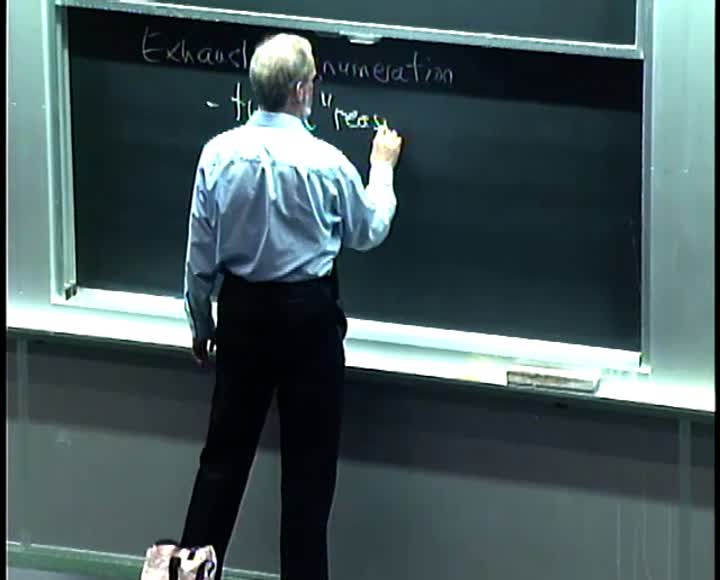 Exhau numeration
- t "reas